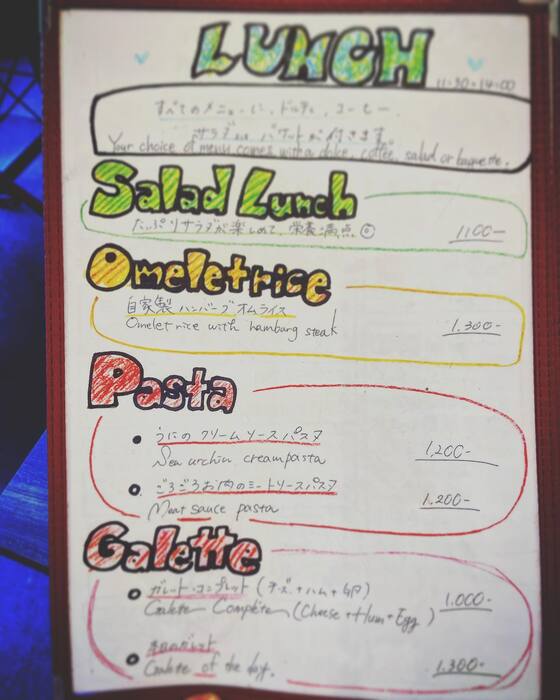 LUNCH
11:30~14:00
すべてのメニューに、ドルチェ、コーヒー、
サラダor バゲットが付きます
Your choice of menu comes with a dolce, coffee, salad or baguette.
Salad Lunch
たっぷりサラダが楽しめて、栄養満点◎
1100-
Omeletrice
自家製 ハンバーグオムライス
Omelet rice with hamburg steak
1.300-
Pasta
• うにの クリームソースパスタ
Sea urchin creampasta
1,200-
• ごろごろお肉のミートソースパスタ
Meat sauce pasta
1.200-
Galette
• ガレット・コンプレット (チーズ+ハム+卵)
Galette Complete (Cheese+Hum+Egg)
1.000-
• 本日のガレット
Galette of the day.
1.300-